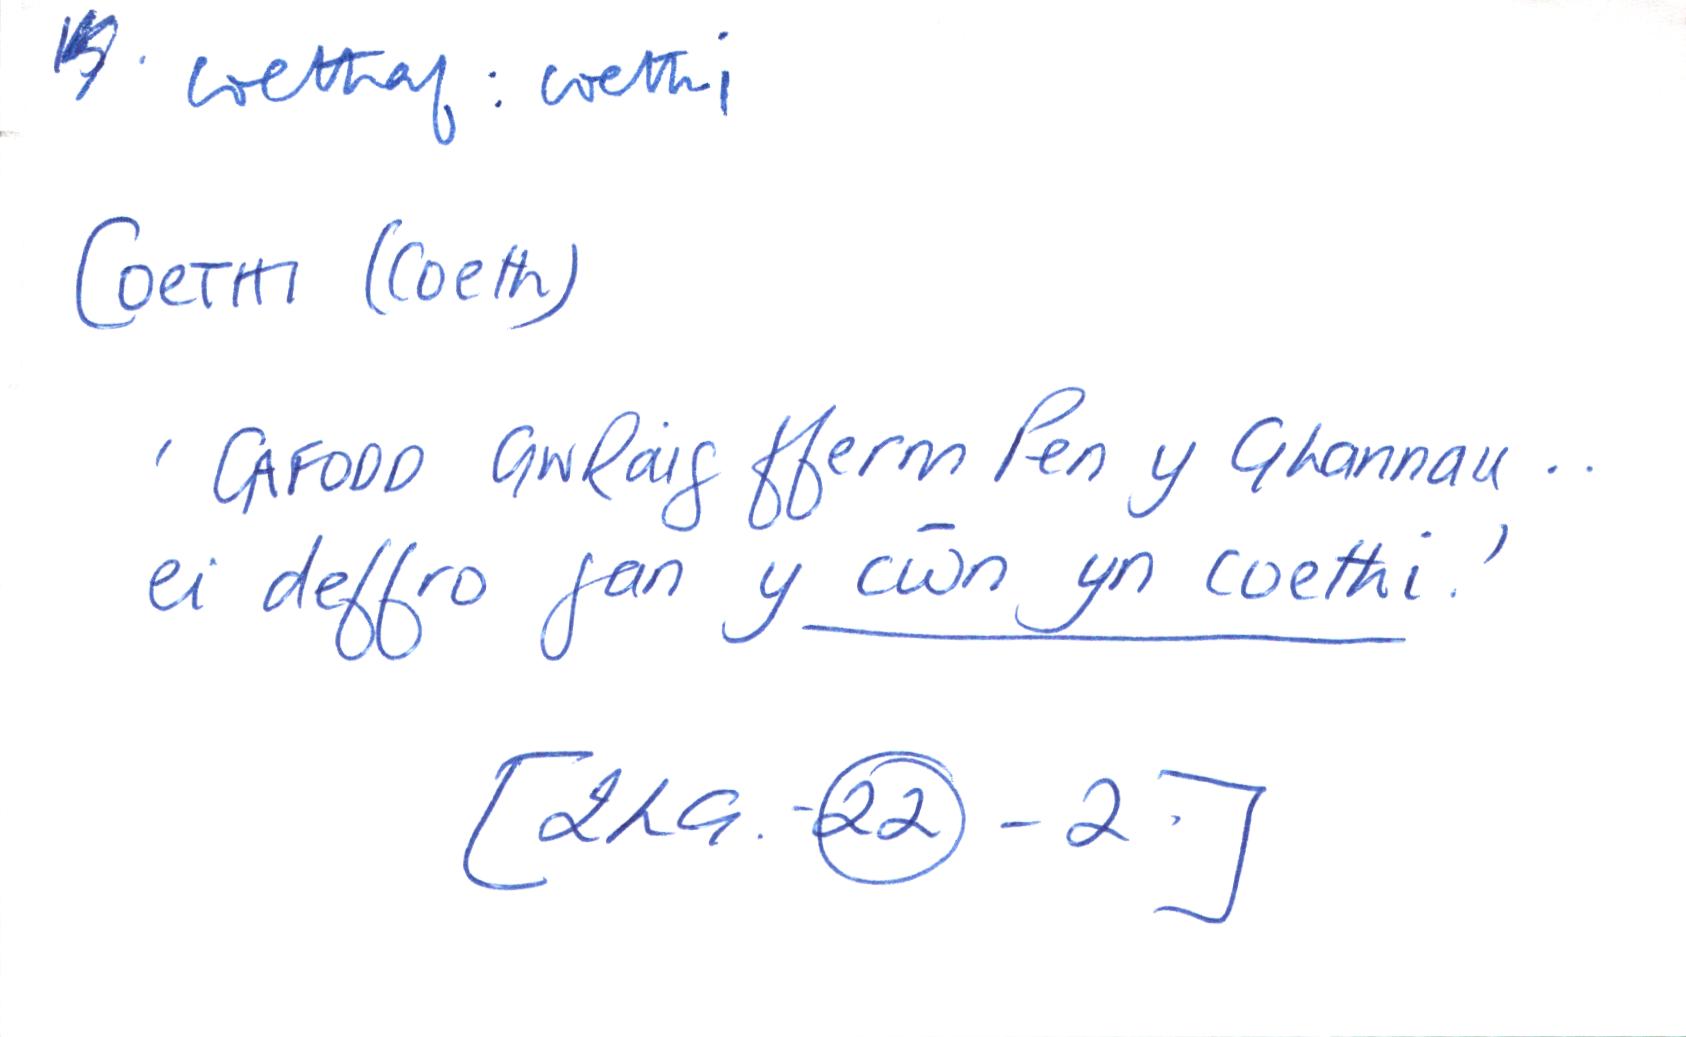 coethaf : coethi
COETHI (Coeth)
' CAFODD GWRaig fferm Pen y Ghannau ..
ei deffro gan y cŵn yn coethi.'
[2LG. - 22 - 2.]